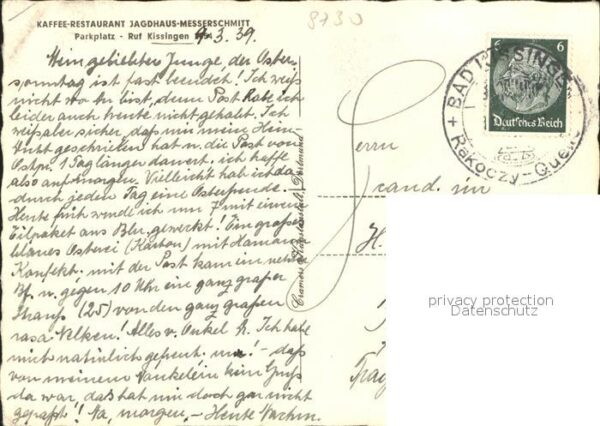 KAFFEE-RESTAURANT JAGDHAUS-MESSERSCHMITT
Parkplatz - Ruf Kissingen
8730
9.3.39.
Mein geliebter Junge, der Oster-
sonntag ist fast beendet! Ich weiß
nicht wo Du bist, denn Post habe ich
leider auch heute nicht gehabt. Ich
weiß aber sicher, daß mir mein
geschrieben hat u. die Post von
Ostpr. 1 Tag länger dauert. ich hoffe
also auf morgen. Vielleicht hab ich da-
durch jeden Tag eine Osterfreude.
Heute früh wurde ich um 7 mit einem
Eilpaket aus Bln. geweckt! Ein großes
blaues Osterei (Karton) mit Hamann
Konfekt. mit der Post kam ein netter
Bf. u. gegen 10 Uhr ein ganz großer
Strauß (25) von den ganz großen
rosa Nelken! Alles v. Onkel H. Ich habe
mich natürlich gefreut - daß
von meinem kein Gruß
da war, das hat mir doch gar nicht
gepaßt! Na, morgen. - Heute Nachm.
Cramers Kunstanstalt, Dortmund
Herrn
BAD KISSINGEN
Rakoczy-Quelle
6
6
Deutsches Reich
privacy protection
Datenschutz